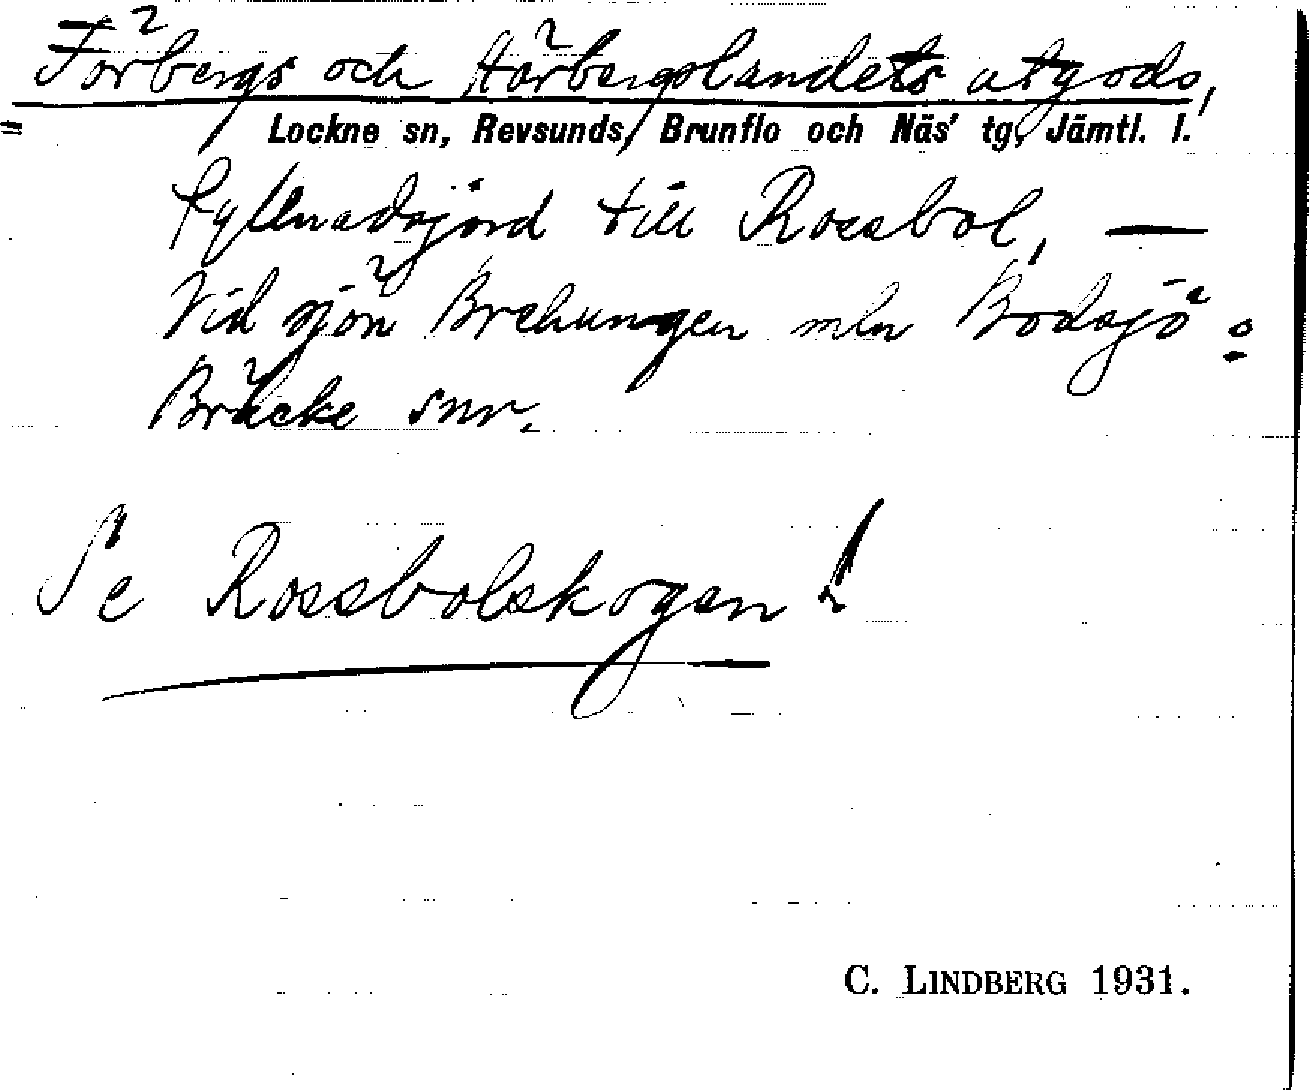 Förbergs och Hårbergslandets utgods,
Lockne sn, Revsunds, Brunflo och Näs' tg, Jämtl. l.
fyllnadsjord till Rossbol, —
Vid sjön Brekungen mln Bodsjö o
Bräcke snr.
Se Rossbolskogen!
C. LINDBERG 1931.